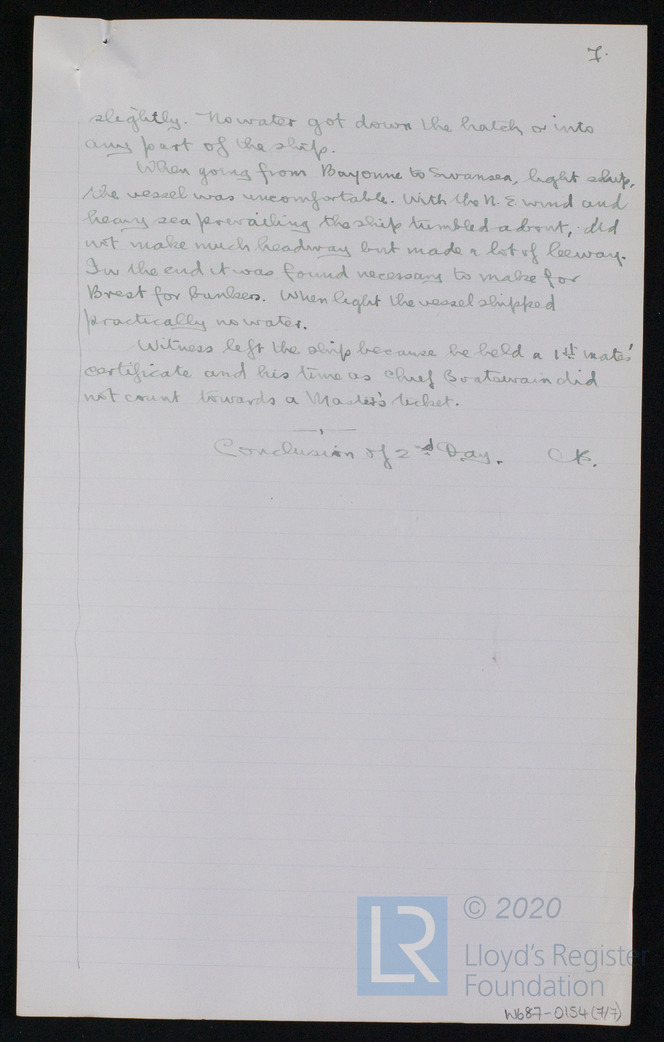 7.
slightly. No water got down the hatch, or into
any part of the ship.
When going from Bayonne to Swansea, light ship,
the vessel was uncomfortable. With the N. E wind and
heavy sea prevailing the ship tumbled about, did
not make much headway but made a lot of leeway.
In the end it was found necessary to make for
Brest for bunkers. When light the vessel shipped
practically no water.
Witness left the ship because he held a 1st mate's
certificate and his time as Chief Boatswain did
not count towards a Master's ticket.
Conclusion of 2nd Day.
© 2020
LR
Lloyd's Register
Foundation
W687-0154(7/7)